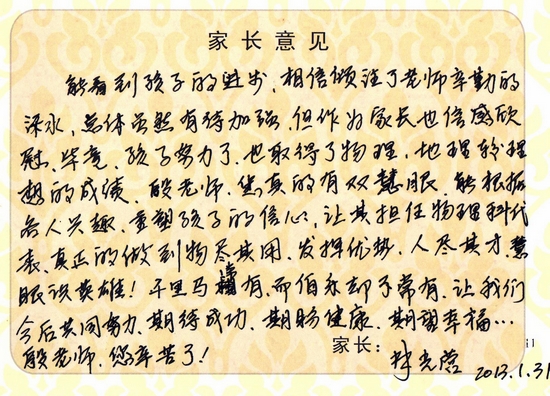 家长意见
能看到孩子的进步、相信倾注了老师辛勤的
深水、总体虽然有待加强、但作为家长也倍感欣
慰、毕竟、孩子努力了、也取得了物理、地理较理
想的成绩、殷老师、您真的有双慧眼、能根据
各人兴趣、重塑孩子的信心、让其担任物理科代
表、真正的做到物尽其用、发挥优势、人尽其才、慧
眼识英雄!千里马常有、而伯乐却不常有、让我们
今后共同努力、期待成功、期盼健康、期望幸福…
殷老师、您辛苦了!
家长:
2013.1.31